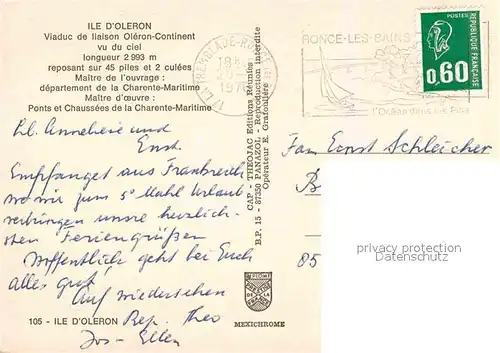 ILE D'OLERON
Viaduc de liaison Oléron-Continent
vu du ciel
longueur 2 993 m
reposant sur 45 piles et 2 culées
Maître de l'ouvrage :
département de la Charente-Maritime
Maître d'œuvre :
Ponts et Chaussées de la Charente-Maritime
Kl. Anneliese und
Ernst.
Empfanget aus Frankreich
wo wir zum 5° Mahl Urlaub
verbringen unsre herzlich-
sten Feriengrüßen
Hoffentlich geht bei Euch
alles gut
Auf wiedersehen
Theo
Jos - Ellen
105 - ILE D'OLERON
CAP - THEOJAC Editions Réunies
B.P. 15 - 87350 PANAZOL - Reproduction interdite
Opérateur E. Grafouillère
MEXICHROME
LA TREMBLADE-RONCE
RONCE-LES-BAINS
l'Océan dans les Pins
POSTES
0,60
REPUBLIQUE FRANÇAISE
Fam Ernst Schleicher
B
85
privacy protection
Datenschutz